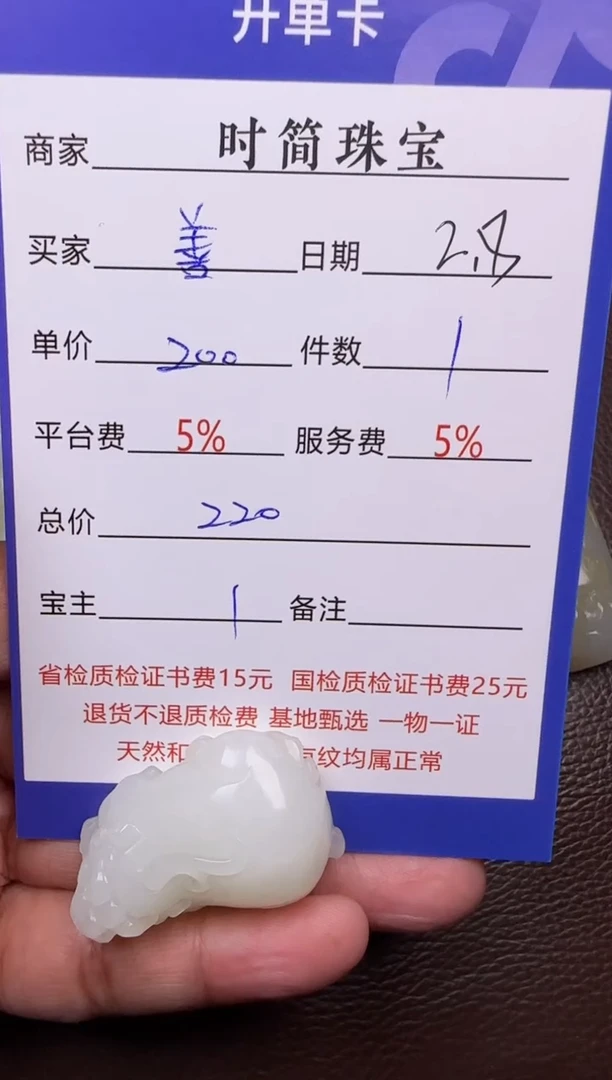 开单卡
商家 时简珠宝
买家 善 日期 2.8
单价 200 件数 1
平台费 5% 服务费 5%
总价 220
宝主 1 备注
省检质检证书费15元 国检质检证书费25元
退货不退质检费 基地甄选 一物一证
天然和 纹均属正常